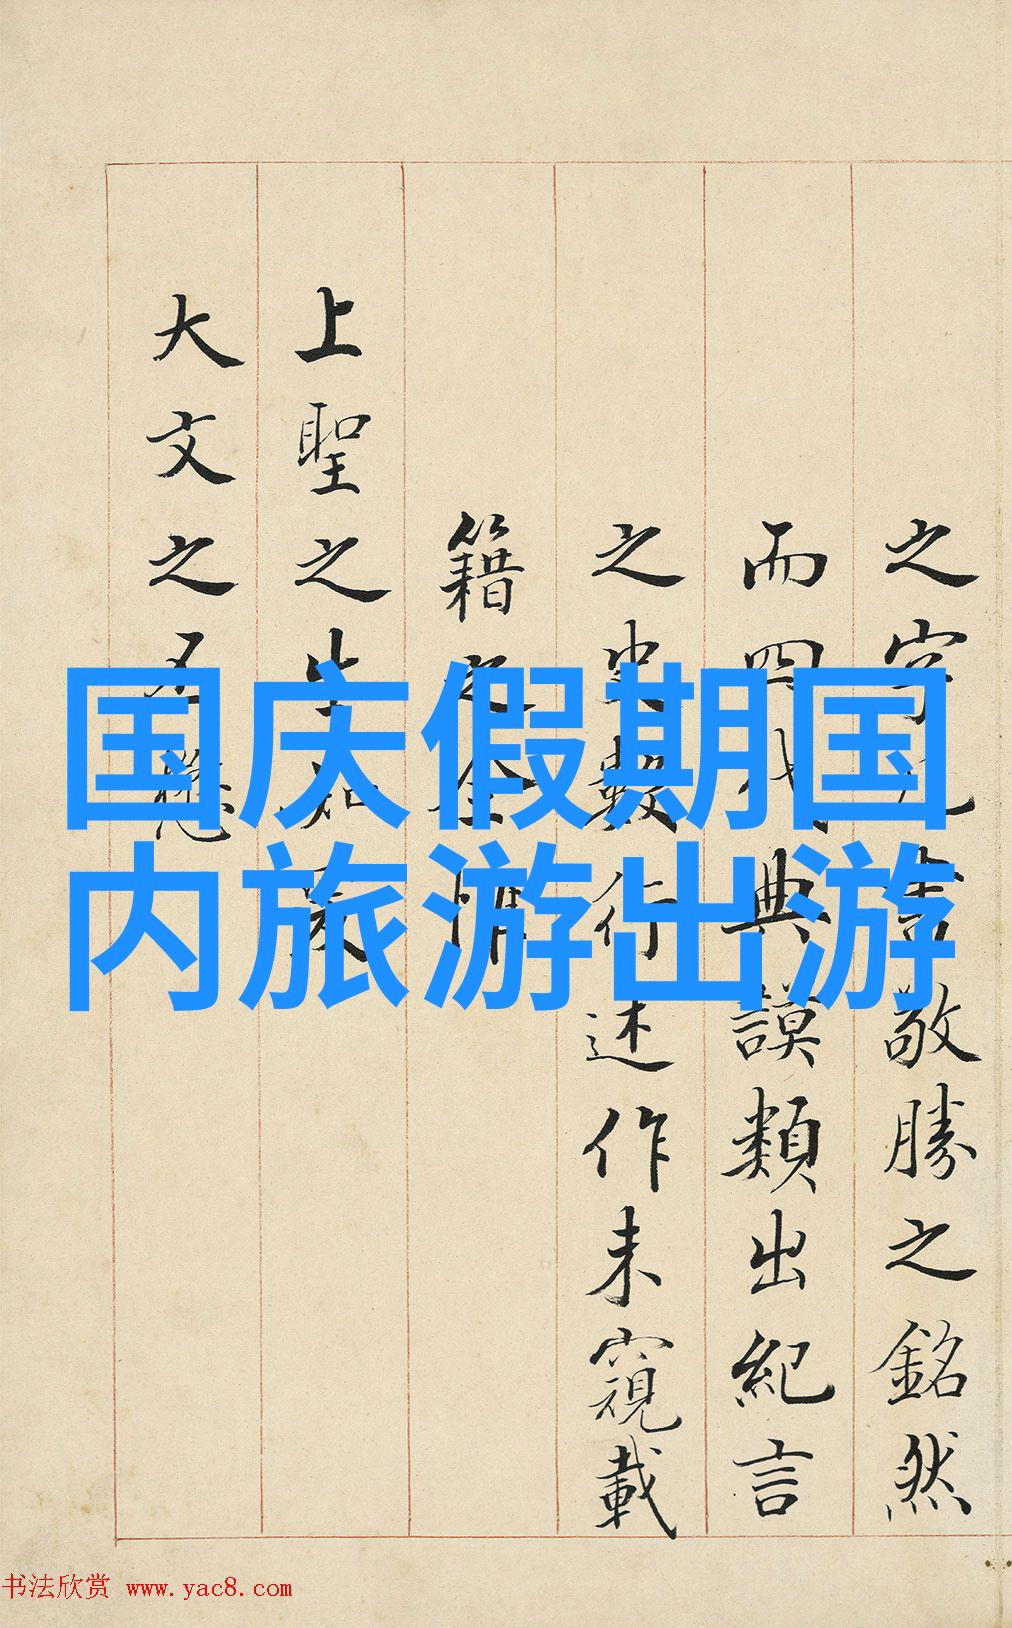 国庆假期国
内旅游出游
之字
書敬勝之銘然
而四代典謨類出紀言
之史數行述作未窺載
籍之全惟
上聖之生知
大文之
书法欣赏 www.yac8.com